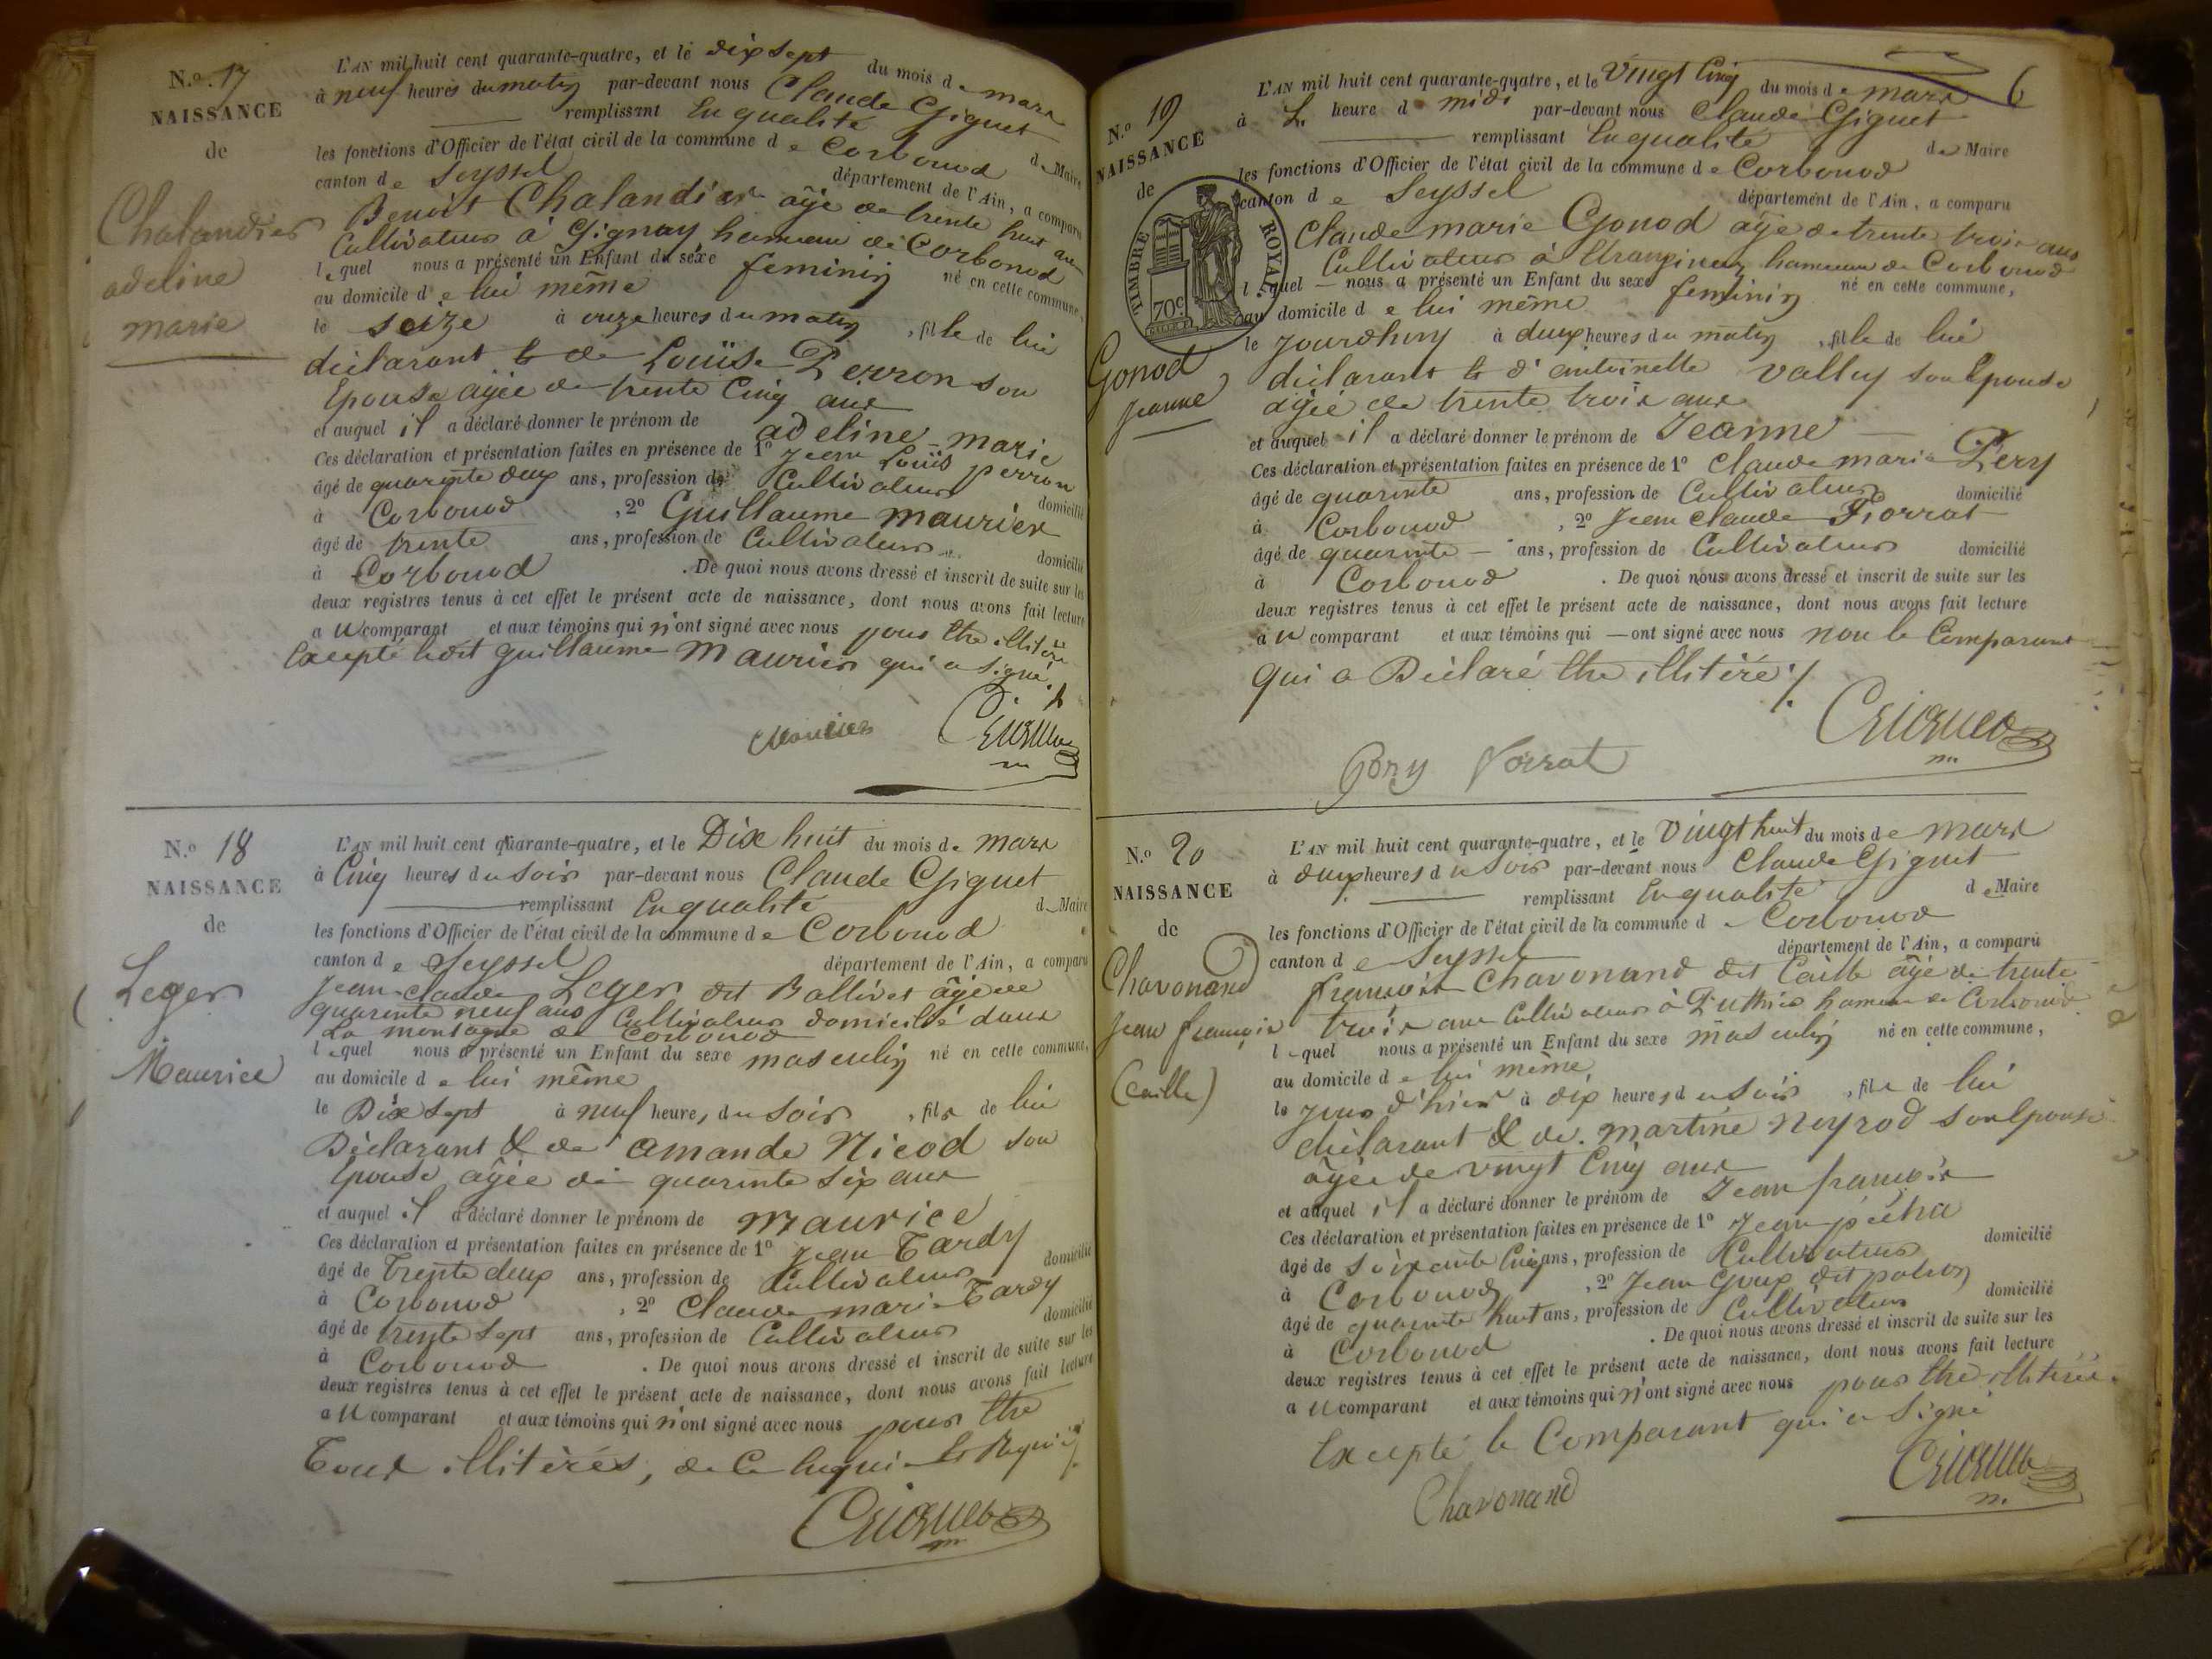 N.o 17
NAISSANCE
de
Chalandier
adeline
marie
L'AN mil huit cent quarante-quatre, et le dix sept du mois de mars
à neuf heures du matin par-devant nous Claude Giguet
remplissant En qualité de Maire
les fonctions d'Officier de l'état civil de la commune de Corbonod
canton de Seyssel département de l'Ain, a comparu
Benoit Chalandier âgé de trente huit ans
Cultivateur à Gignay hameau de Corbonod
lequel nous a présenté un Enfant du sexe feminin né en cette commune,
au domicile de lui même
le seize à onze heures du matin, fille de lui
déclarant & de Louïse Perron son
Epouse agée de trente Cinq ans
et auquel il a déclaré donner le prénom de adeline-marie
Ces déclaration et présentation faites en présence de 1º Jean Louïs perron
âgé de quarente deux ans, profession de Cultivateur domicilié
à Corbonod, 2º Guillaume maurier
âgé de trente ans, profession de Cultivateur domicilié
à Corbonod. De quoi nous avons dressé et inscrit de suite sur les
deux registres tenus à cet effet le présent acte de naissance, dont nous avons fait lecture
au comparant et aux témoins qui n'ont signé avec nous pour Etre illitéré
Excepté ledit guillaume maurier qui a signé
Maurier
N.o 18
NAISSANCE
de
Leger
Maurice
L'AN mil huit cent quarante-quatre, et le Dix huit du mois de mars
à Cinq heures du soir par-devant nous Claude Giguet
remplissant En qualité de Maire
les fonctions d'Officier de l'état civil de la commune de Corbonod
canton de Seyssel département de l'Ain, a comparu
Jean-claude Leger dit Ballivet âgé de
quarente neuf ans Cultivateur domicilié dans
La montagne de Corbonod
lequel nous a présenté un Enfant du sexe masculin né en cette commune,
au domicile de lui même
le Dix sept à neuf heures du soir, fils de lui
Déclarant & de amande Nicod son
Epouse âgée de quarente six ans
et auquel il a déclaré donner le prénom de maurice
Ces déclaration et présentation faites en présence de 1º Jean Tardy
âgé de trente deux ans, profession de Cultivateur domicilié
à Corbonod, 2º Claude marie Tardy
âgé de trente sept ans, profession de Cultivateur domicilié
à Corbonod. De quoi nous avons dressé et inscrit de suite sur les
deux registres tenus à cet effet le présent acte de naissance, dont nous avons fait lecture
au comparant et aux témoins qui n'ont signé avec nous pour Etre
Tous illitérés, de Ce
6
N.o 19
NAISSANCE
de
TIMBRE ROYAL
70c.
Gonod
Jeanne
L'AN mil huit cent quarante-quatre, et le Vingt Cinq du mois de mars
à heure de midi par-devant nous Claude Giguet
remplissant En qualité de Maire
les fonctions d'Officier de l'état civil de la commune de Corbonod
canton de Seyssel département de l'Ain, a comparu
Claude marie Gonod âgé de trente trois ans
Cultivateur à hameau de Corbonod
lequel nous a présenté un Enfant du sexe feminin né en cette commune,
au domicile de lui même
le Jourdhuy à deux heures du matin, fille de lui
déclarant & d'antoinette vallet son Epouse
agée de trente trois ans
et auquel il a déclaré donner le prénom de Jeanne
Ces déclaration et présentation faites en présence de 1º Claude marie Péry
âgé de quarente ans, profession de Cultivateur domicilié
à Corbonod, 2º Jean claude
âgé de quarente ans, profession de Cultivateur domicilié
à Corbonod. De quoi nous avons dressé et inscrit de suite sur les
deux registres tenus à cet effet le présent acte de naissance, dont nous avons fait lecture
au comparant et aux témoins qui ont signé avec nous non le Comparant
qui a Déclaré Etre illitéré
Péry
N.o 20
NAISSANCE
de
Chavonand
Jean françois
(Caille)
L'AN mil huit cent quarante-quatre, et le Vingt huit du mois de mars
à deux heures du soir par-devant nous Claude Giguet
remplissant En qualité de Maire
les fonctions d'Officier de l'état civil de la commune de Corbonod
canton de Seyssel département de l'Ain, a comparu
françois Chavonand dit Caille âgé de trente
trois ans Cultivateur à hameau de Corbonod
lequel nous a présenté un Enfant du sexe masculin né en cette commune,
au domicile de lui même
le Jour d'hier à dix heures du soir, fils de lui
déclarant & de martine neyrod son Epouse
âgée de vingt Cinq ans
et auquel il a déclaré donner le prénom de Jean françois
Ces déclaration et présentation faites en présence de 1º Jean
âgé de soixante Cinq ans, profession de Cultivateur domicilié
à Corbonod, 2º Jean dit
âgé de quarente huit ans, profession de Cultivateur domicilié
à Corbonod. De quoi nous avons dressé et inscrit de suite sur les
deux registres tenus à cet effet le présent acte de naissance, dont nous avons fait lecture
au comparant et aux témoins qui n'ont signé avec nous pour Etre illitérés
Excepté le Comparant qui a Signé
Chavonand